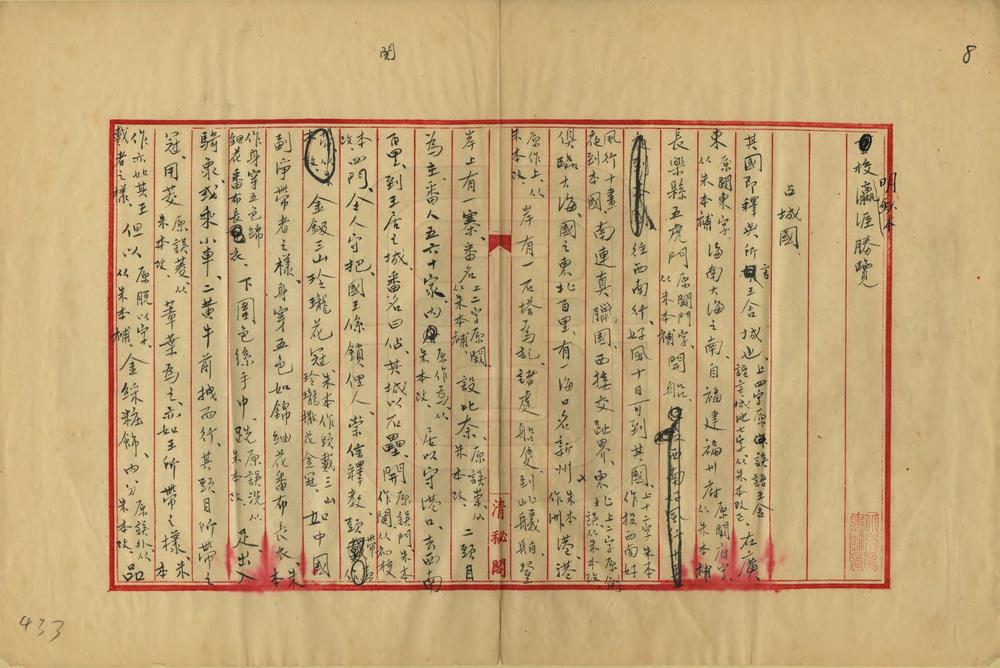 8
閱
校明鈔本瀛涯勝覽
占城國
其國即釋典所言王舍城也上四字原誤語王舍
語言城池七字從朱本改正在廣
東原闕東字
從朱本補海南大海之南自福建福州府原闕府字
從朱本補
長樂縣五虎門原闕門字
從朱本補開船
往西南行好風十日可到其國上十一字朱本
作投西南好
風行十晝
夜到本國南連真臘國西接交趾界東北上二字原倒
誤從朱本改
俱臨大海國之東北百里有一海口名新州朱本
作洲港港
原作上從
朱本改岸有一石塔為記諸處船隻到此艤舶登
岸上有一寨番名上二字原闕
從朱本補設比奈原誤崇從
朱本改二頭目
為主番人五六十家內原作為從
朱本改居以守港口去西南
百里到王居之城番名曰佔其城以石壘開原誤門朱本
作關以初校
改本四門令人守把國王係鎖俚人崇信釋教頭戴
金鈒三山玲瓏花冠朱本作頭戴三山
玲瓏撒花金冠如中國
副淨帶者之樣身穿五色如錦紬花番布長衣朱本
作身穿五色錦
細花番布長衣下圍色絲手巾跣原誤洗從
朱本改足出入
騎象或乘小車二黃牛前拽而行其頭目所帶之
冠用茭原誤菱從
朱本改葦葉為之亦如王所帶之樣朱本
作亦如其王
戴者之樣但以原脫以字
從朱本補金綵粧飾內分原誤外從
朱本改品
清秘閣
433